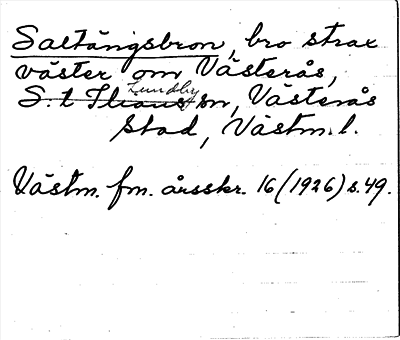 Saltängsbron, bro strax
väster om Västerås,
S:t Ilians Lundby sn, Västerås
Stad, Västm. l.
Västm. fm. årsskr. 16 (1926) s. 49.